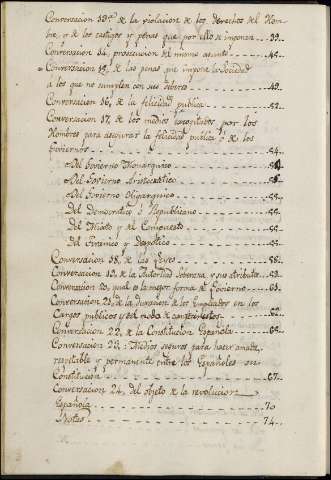 Conversacion 13ª de la violacion de los derechos del Hom-
bre, y de los castigos y penas que por ello se imponen --- 39..
Conversacion 14, prosecucion del mismo asunto ---- 45..
Conversacion 15, de las penas que impone la Sociedad
a los que no cumplen con sus deberes --- 49..
Conversacion 16, de la felicidad publica --- 52..
Conversacion 17, de los medios inventados por los
Hombres para asegurar la felicidad publica ó de los
Goviernos --- 54..
Del Govierno Monarquico ---
Del Govierno Aristocratico ---
Del Govierno Oligarquico --- 55..
Del Democratico ó Republicano --- 55..
Del Mixto y el Compuesto --- 55..
Del Tiranico y Despotico --- 55..
Conversacion 18, de las Leyes --- 56..
Conversacion 19, de la Autoridad Soberana y sus atributos. 59..
Conversacion 20, qual es la mejor forma de Govierno -- 61..
Conversacion 21, de la duracion de los Empleados en los
Cargos publicos y del modo de conferirlos --- 62..
Conversacion 22, de la Constitucion Española -- 65..
Conversacion 23, Medios seguros para hacer amable,
respetable y permanente entre los Españoles su
Constitucion --- 67..
Conversacion 24, del objeto de la revolucion
Española --- 70
Notas --- 74..